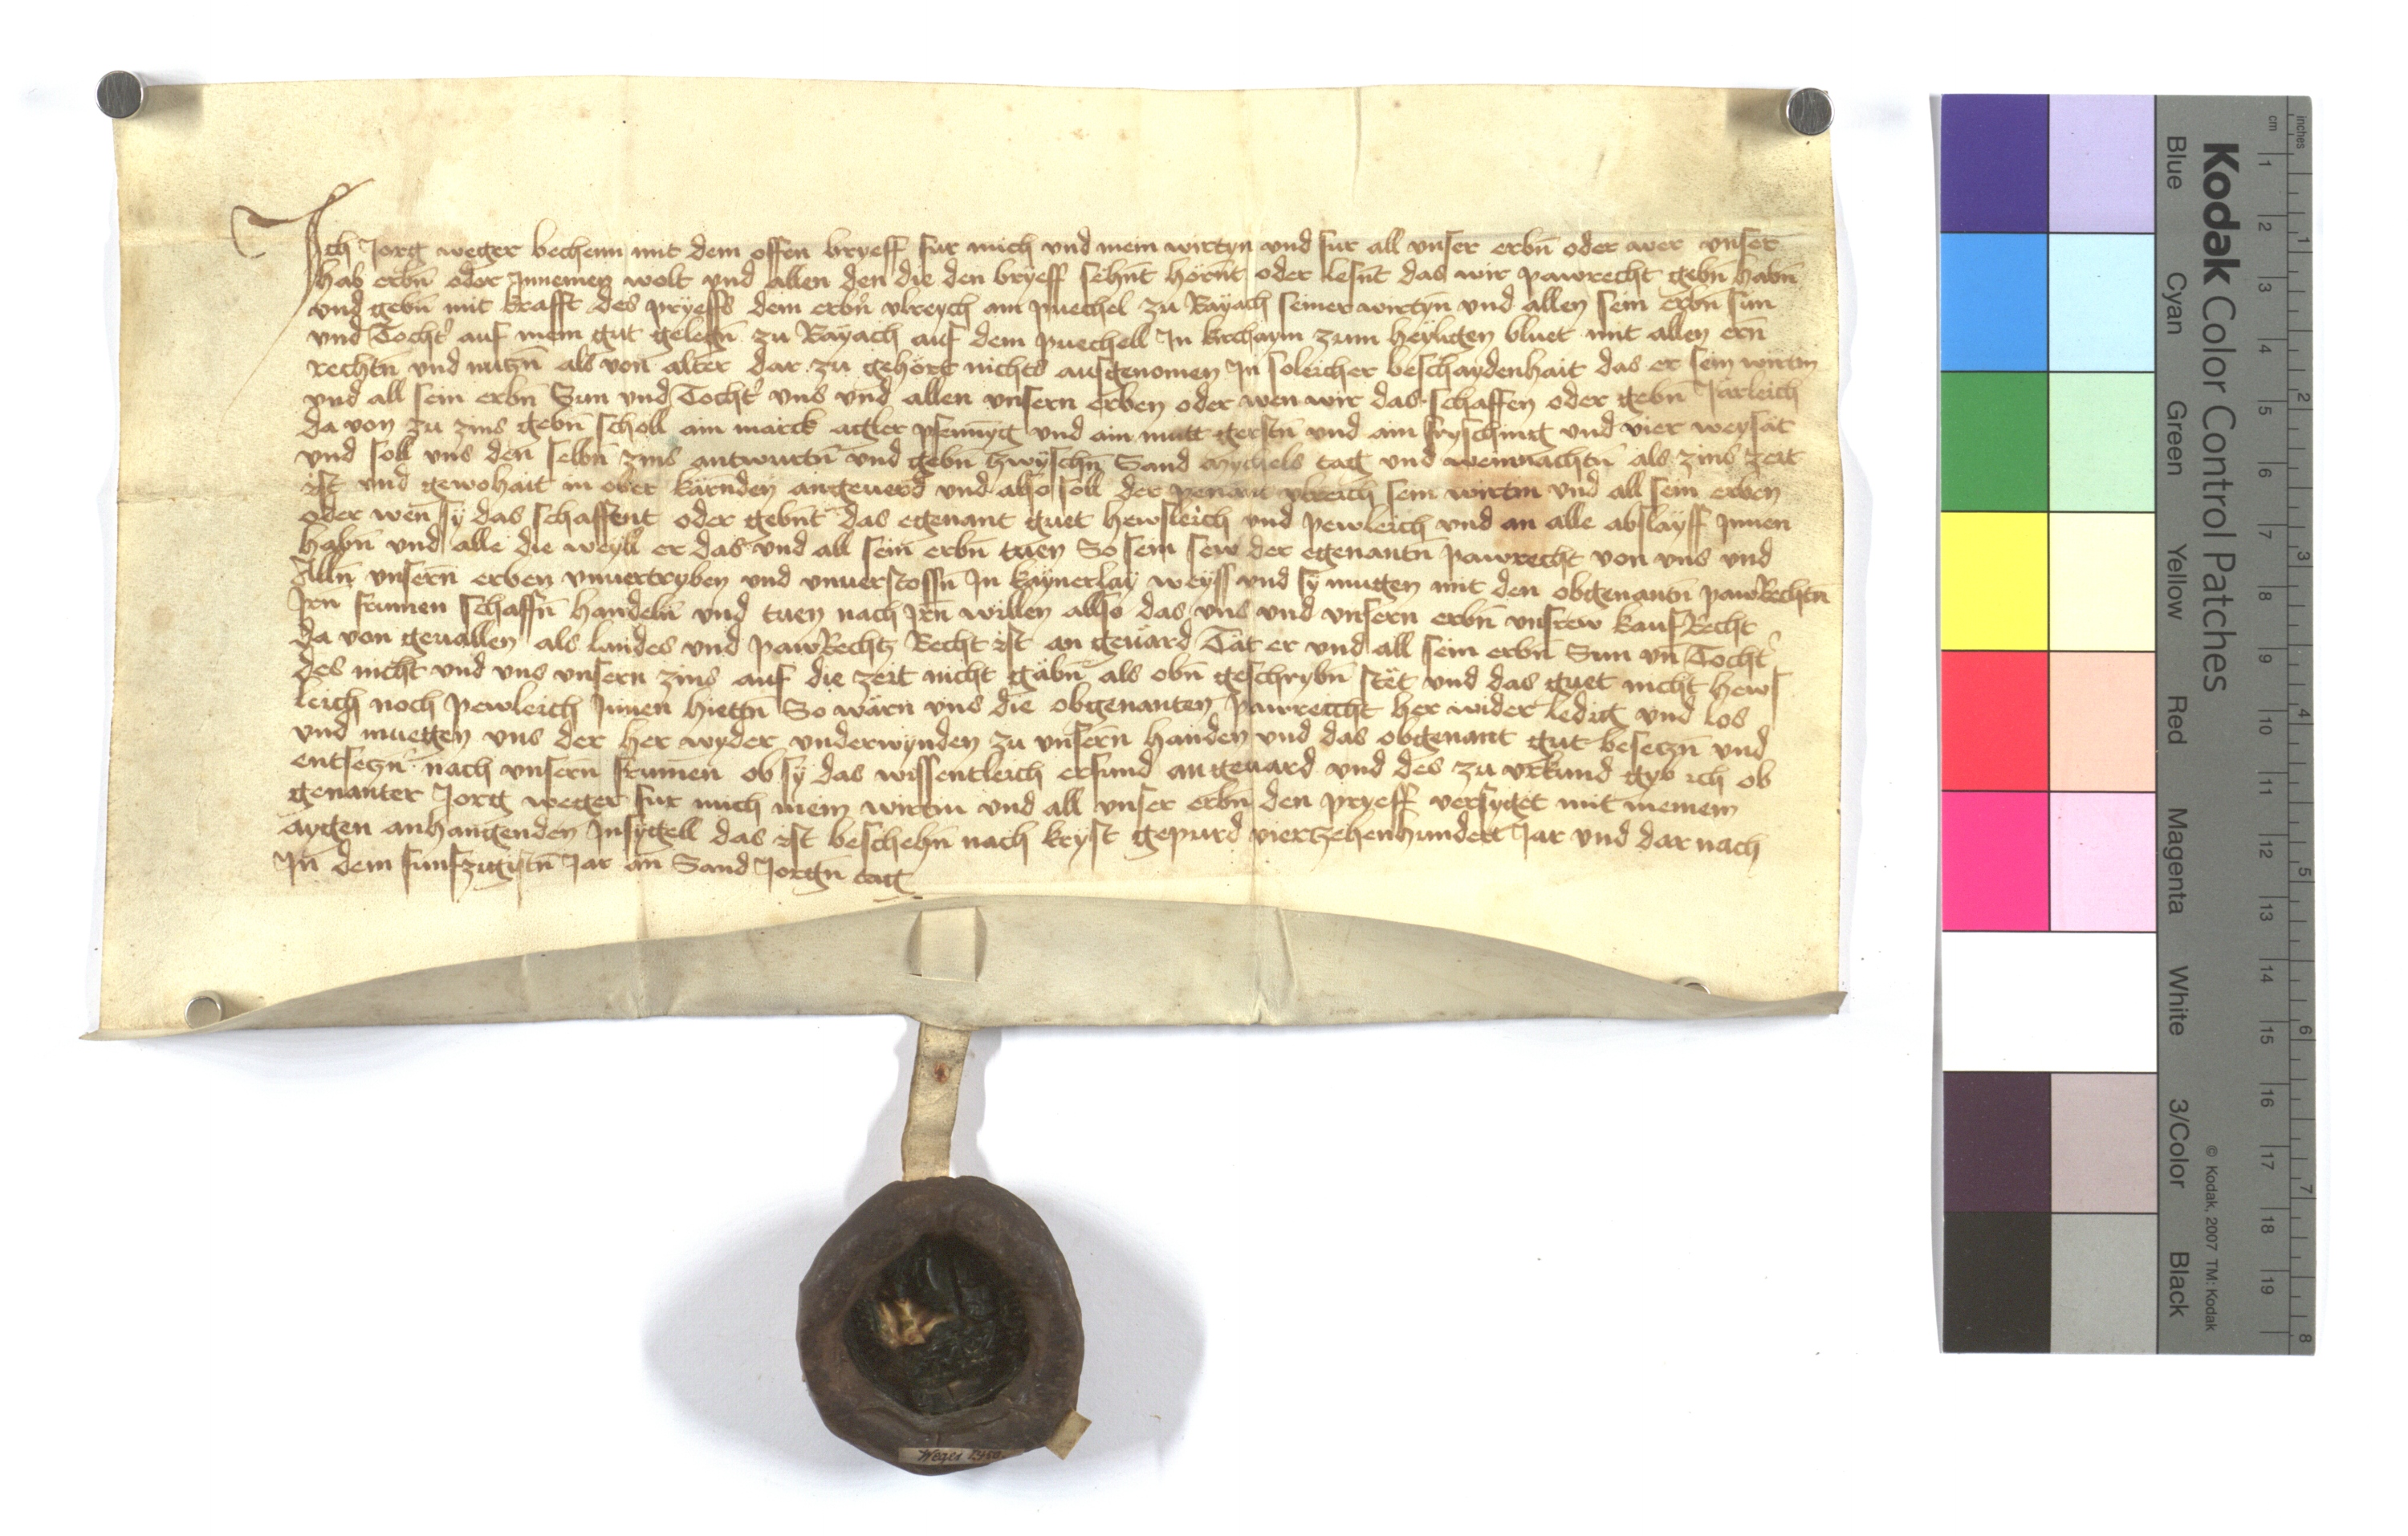 Ich Jorg weger bechenn mit dem offen bryeff für mich und mein wirtyn und für all unser erbn̄ oder wer unser
hab erbn̄ oder Innemen wolt und allen den die den bryeff sehn̄t hörn̄t oder lesn̄t das wir pawrecht gebn̄ habn̄
und gebn̄ mit krafft des pryeffs dem erbn̄ ulreych am puechel zu Räyach seiner wirtyn und allen sein erbn̄ sun
und Tocht' auf mein gut gelegn̄ zu Räyach auf dem puechell In kirchaym zum heyligen bluet mit allen ern̄
rechtn̄ und nutzn̄ als von alter dar zu gehört nichts ausgenomen In soleicher beschaydenhait das er sein wirtin
und all sein erbn̄ Sun und Tocht' uns und allen unsern erben oder wen wir das schaffen oder gebn̄ Järleich
da von zu zins gebn̄ scholl ain marck agler pfennyg und ain mutt gerstn̄ und ain fryschinng und vier weysät
und soll uns den selbn̄ zins antwurtn̄ und gebn̄ zwyschn̄ Sand mychels tag und weinnachtn̄ als zins zeit
ist und gewohait in ober kärnden angeuerd und also soll der genant ulreich sein wirtin und all sein erben
oder wen sy das schaffent oder gebn̄t das egenant guet hewsleich und pewleich und an alle abslayff Innen
habn̄ und alle die weyll er das und all sein erbn̄ tuen So sein sew der egenantn̄ pawrecht von uns und
Alln̄ unsern̄ erben unuertryben und unuerstossn̄ In kaynerlay weyss und sy mugen mit den obgenantn̄ pawRechtn̄
Irn̄ frumen schaffn̄ handeln̄ und tuen nach Irn̄ willen also das uns und unsern erbn̄ unsrew kaufRecht
da von geuallen als landes und pawRechtz Recht ist an geuärd Tät er und all sein erbn̄ Sun un̄ Tocht'
des nicht und uns unsern zins auf die zeit nicht gäbn̄ als obn̄ geschrybn̄ stet und das guet nicht hews
leich noch pewleich Innen hietn̄ So wärn uns die obgenanten pawreccht her wider ledig und los
und muegen uns der her wyder underwynden zu unsern̄ handen und das obgenant gut besetzn̄ und
entsetzn̄ nach unsern̄ frumen ob sy das wissentleich erfund angeuard und des zu urkund gyb ich ob
genanter Jorg weger für mich mein wirtin und all unser erbn̄ den pryeff versyget mit meinem
aygen anhangenden Insygell das ist beschehn̄ nach kryst gepurd viertzehenhundert Jar und dar nach
In̄ dem funfzigistn̄ Jar an Sand Jorgn̄ tag
Weger 1450.
Kodak Color Control Patches
Blue Cyan Green Yellow Red Magenta White 3/Color Black
© Kodak, 2007 TM: Kodak
cm 1 2 3 4 5 6 7 8 9 10 11 12 13 14 15 16 17 18 19
inches 1 2 3 4 5 6 7 8